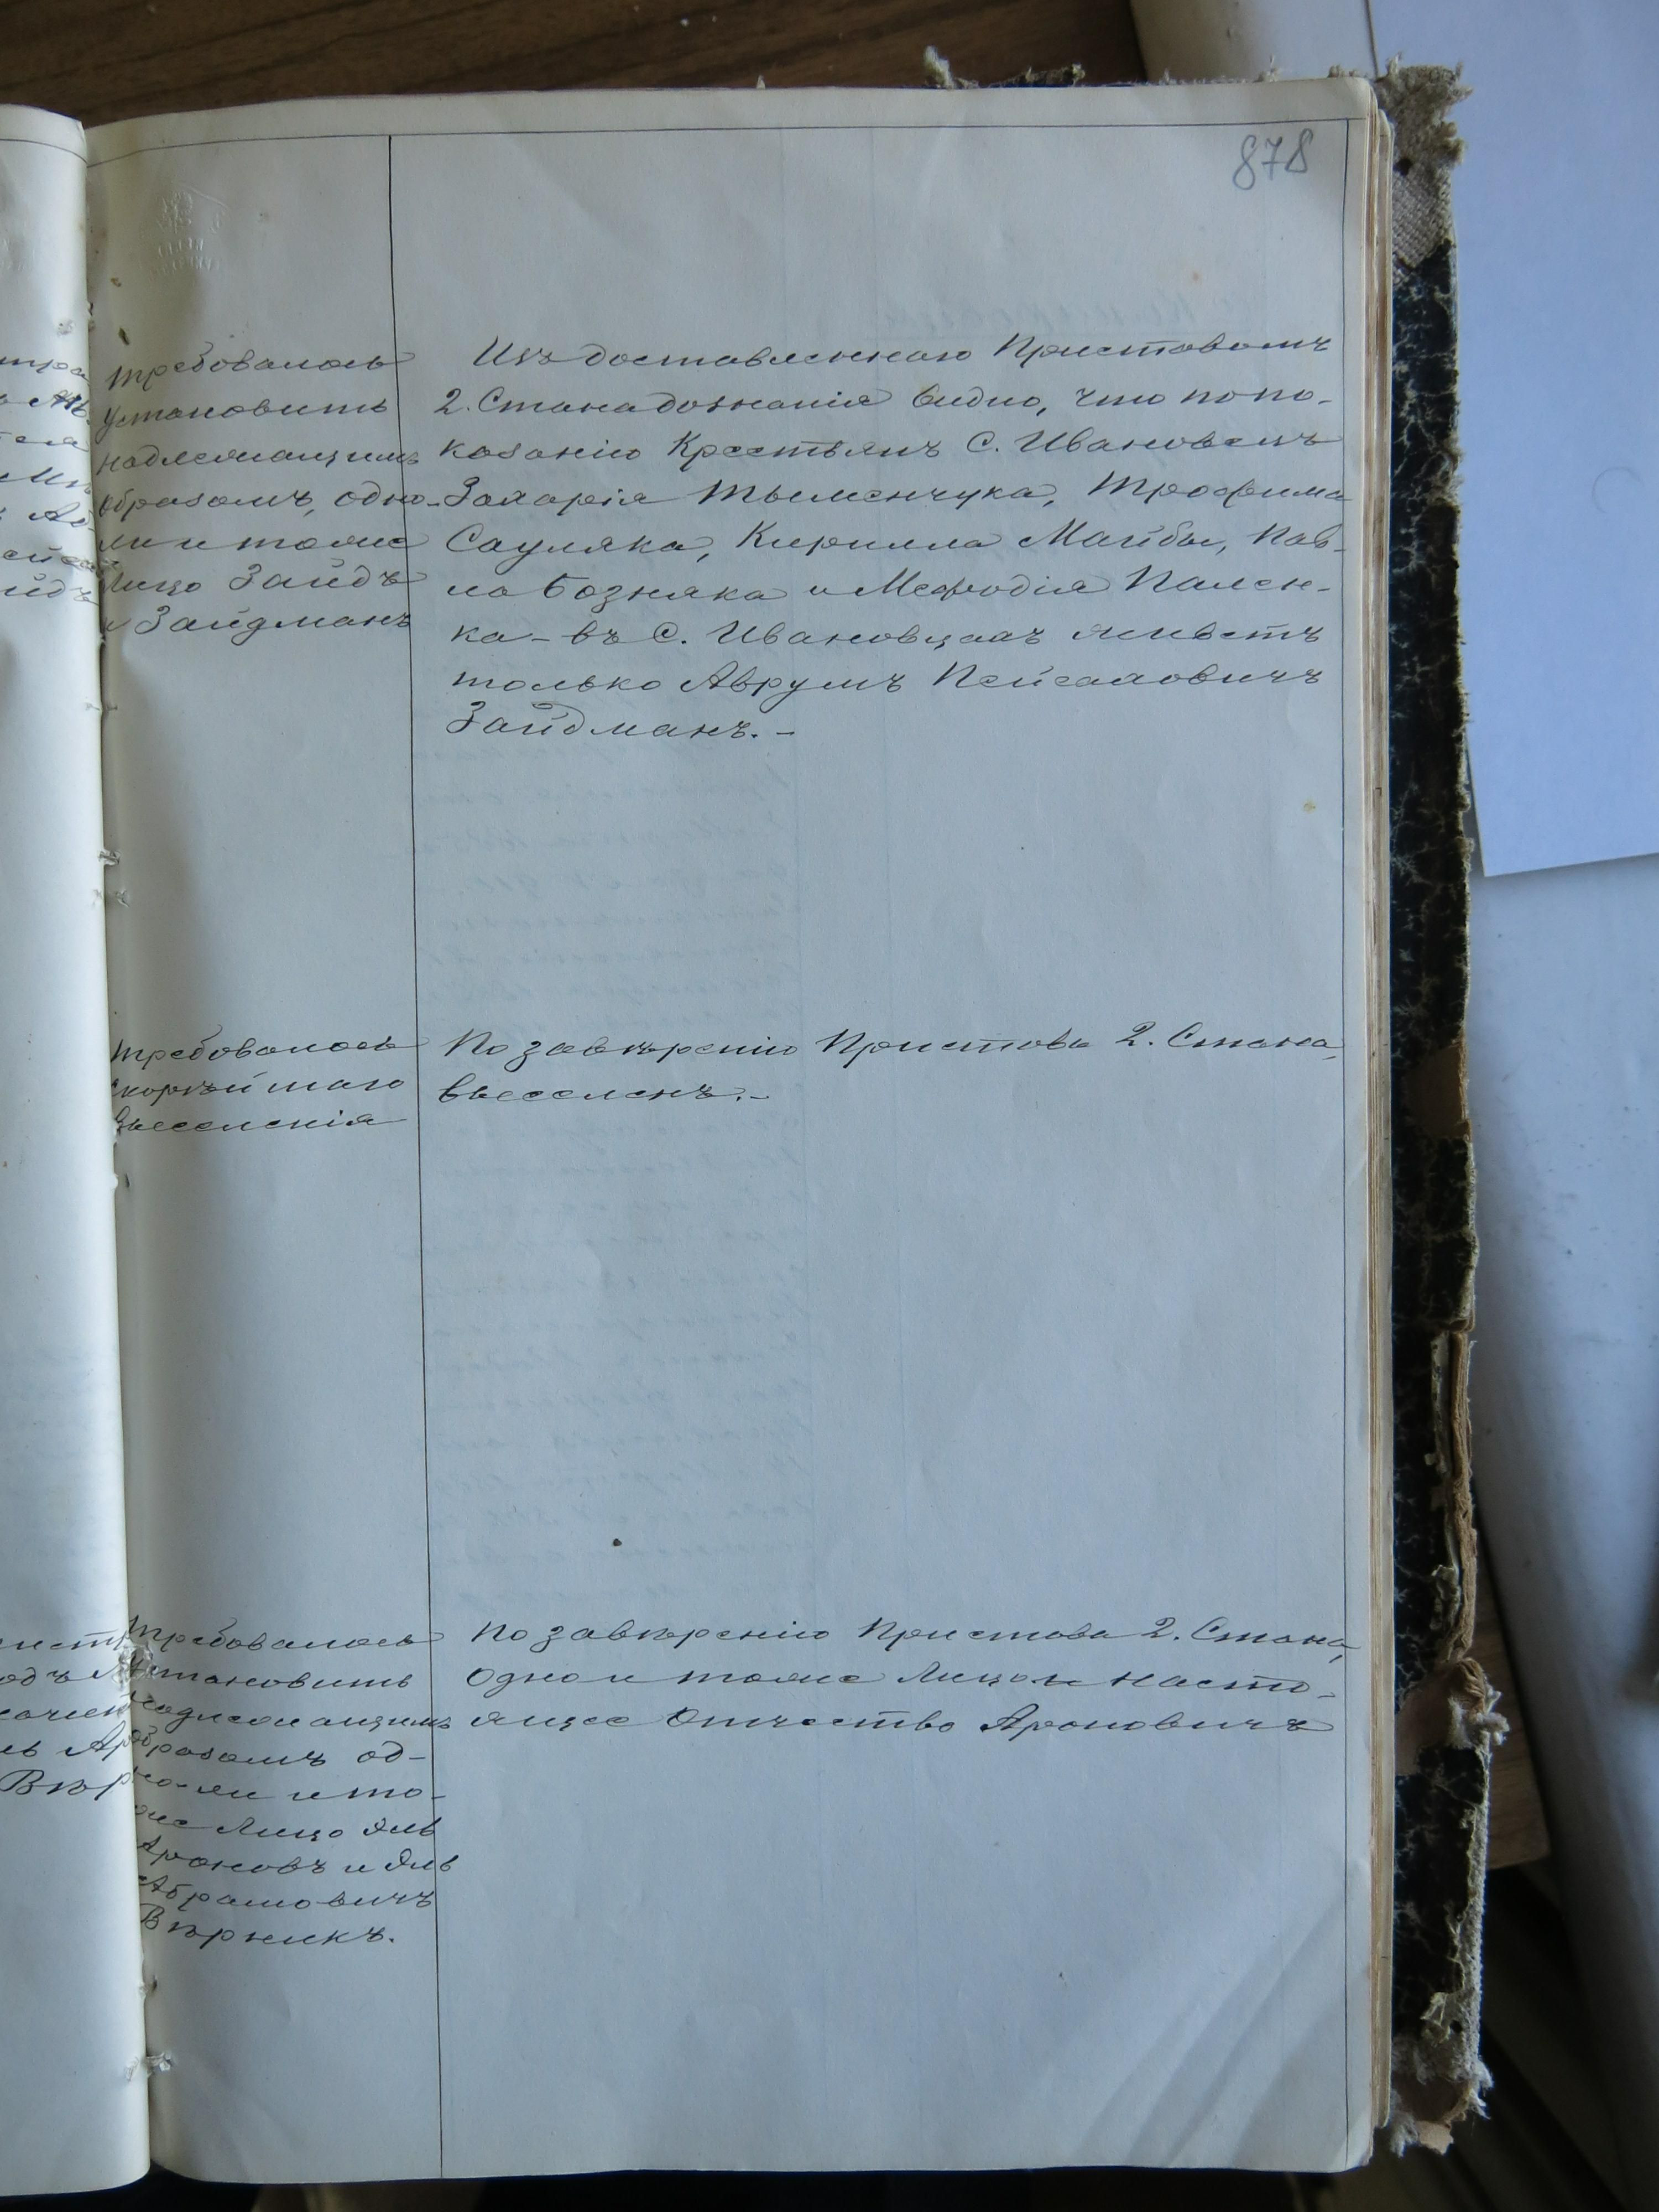 878
Требовалось
установить
надлежащимъ
образомъ, одно-
ли и тоже
лицо Зайдъ
и Зайдманъ
Изъ доставленнаго Приставомъ
2. Стана дознанія видно, что по по-
казанію Крестьянъ С. Ивановецъ
Захарія Тыменчука, Трофима
Сауляка, Кирилла Майбы, Пав-
ла Бозняка и Мефодія Пален-
ка – въ С. Ивановцахъ живетъ
только Аврумъ Пейсаховичъ
Зайдманъ. –
Требовалось
скорѣйшаго
выселенія
По завѣренію Пристава 2. Стана,
выселенъ. –
Требовалось
установить
надлежащимъ
образомъ од-
но-ли и то-
же лицо Эль
Ароновъ и Эль
Абрамовичъ
Вѣрникъ.
По завѣренію Пристава 2. Стана,
одно и тоже лицо и насто-
ящее Отчество Ароновичъ